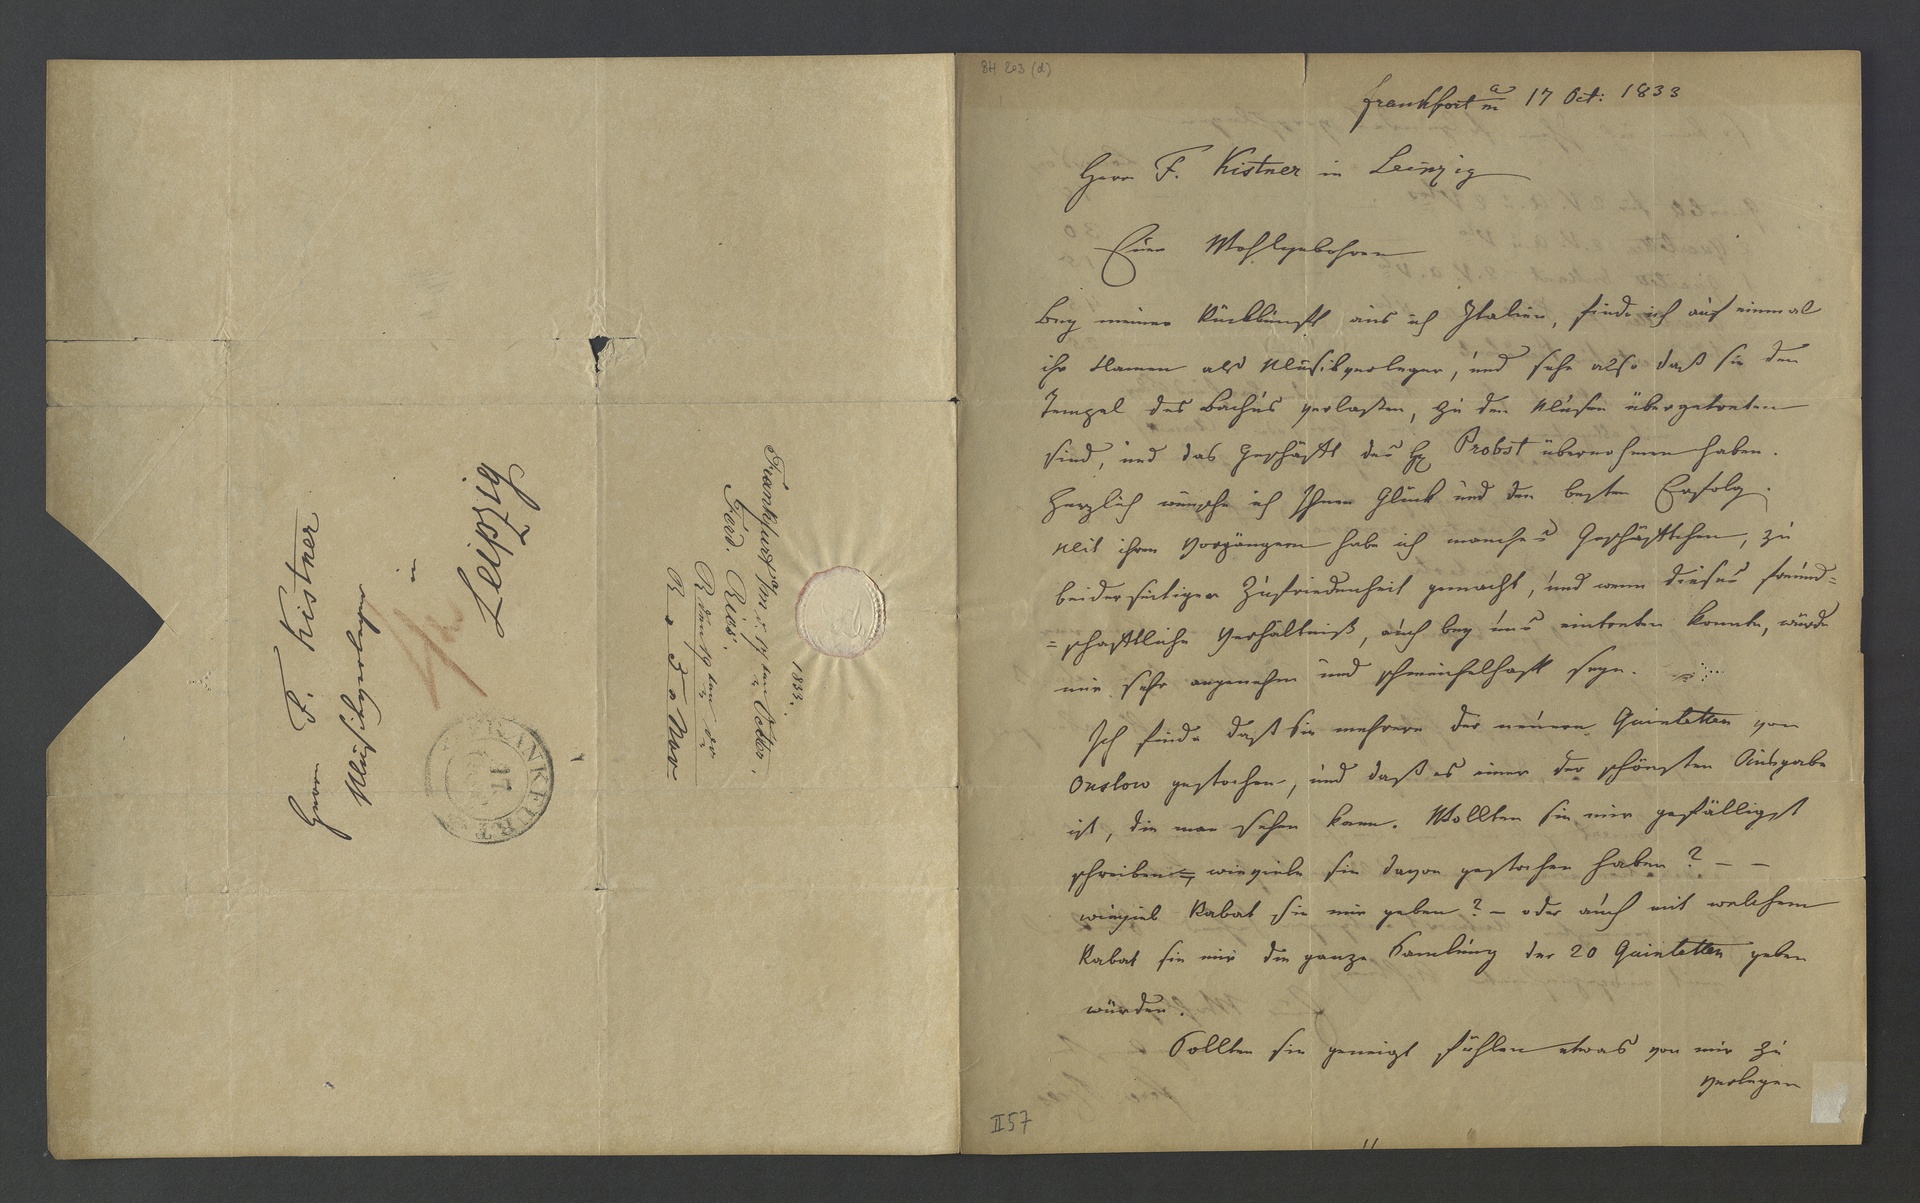 Herrn F. Kistner
Musikverleger
in
Leipzig
FRANKFURT
17
Frankfurt a/m d. 17ten Octbr.
1833.
Ferd. Ries.
R. den 19ten do
B. " 3 " Nov
BH 203 (d)
Frankfort a/m 17 Oct: 1833
Herrn F. Kistner in Leipzig
Euer Wohlgebohren
Bey meiner Rückkunft aus ich Italien, finde ich auf einmal
ihr Namen als Musikverleger, und sehe also daß sie den
Tempel des Bachus verlaßen, zu den Musen übergetreten
sind, und das Geschäfft des H Probst übernohmen haben.
Herzlich wünsche ich Ihnen Glück und den besten Erfolg.
Mit ihren Vorgängern habe ich manches Geschäfftchen, zu
beiderseitiger Zufriedenheit gemacht, und wenn dieses freund=
=schafftliche Verhältniß, auch bey uns eintreten konnte, würde
mir sehr angenehm und schmeichelhaft seyn.
Ich finde daß Sie mehrere der neuern Quintetten von
Onslow gestochen, und daß es einer der schönsten Ausgabe
ist, die man sehen kann. Wollten Sie mir gefälligst
schreiben, wieviele sie davon gestochen haben? — —
wieviel Rabat sie mir geben? — oder auch mit welchem
Rabat sie mir die ganze Samlung der 20 Quintetten geben
würden.
Sollten sie geneigt fühlen etwas von mir zu
verlegen
II 57